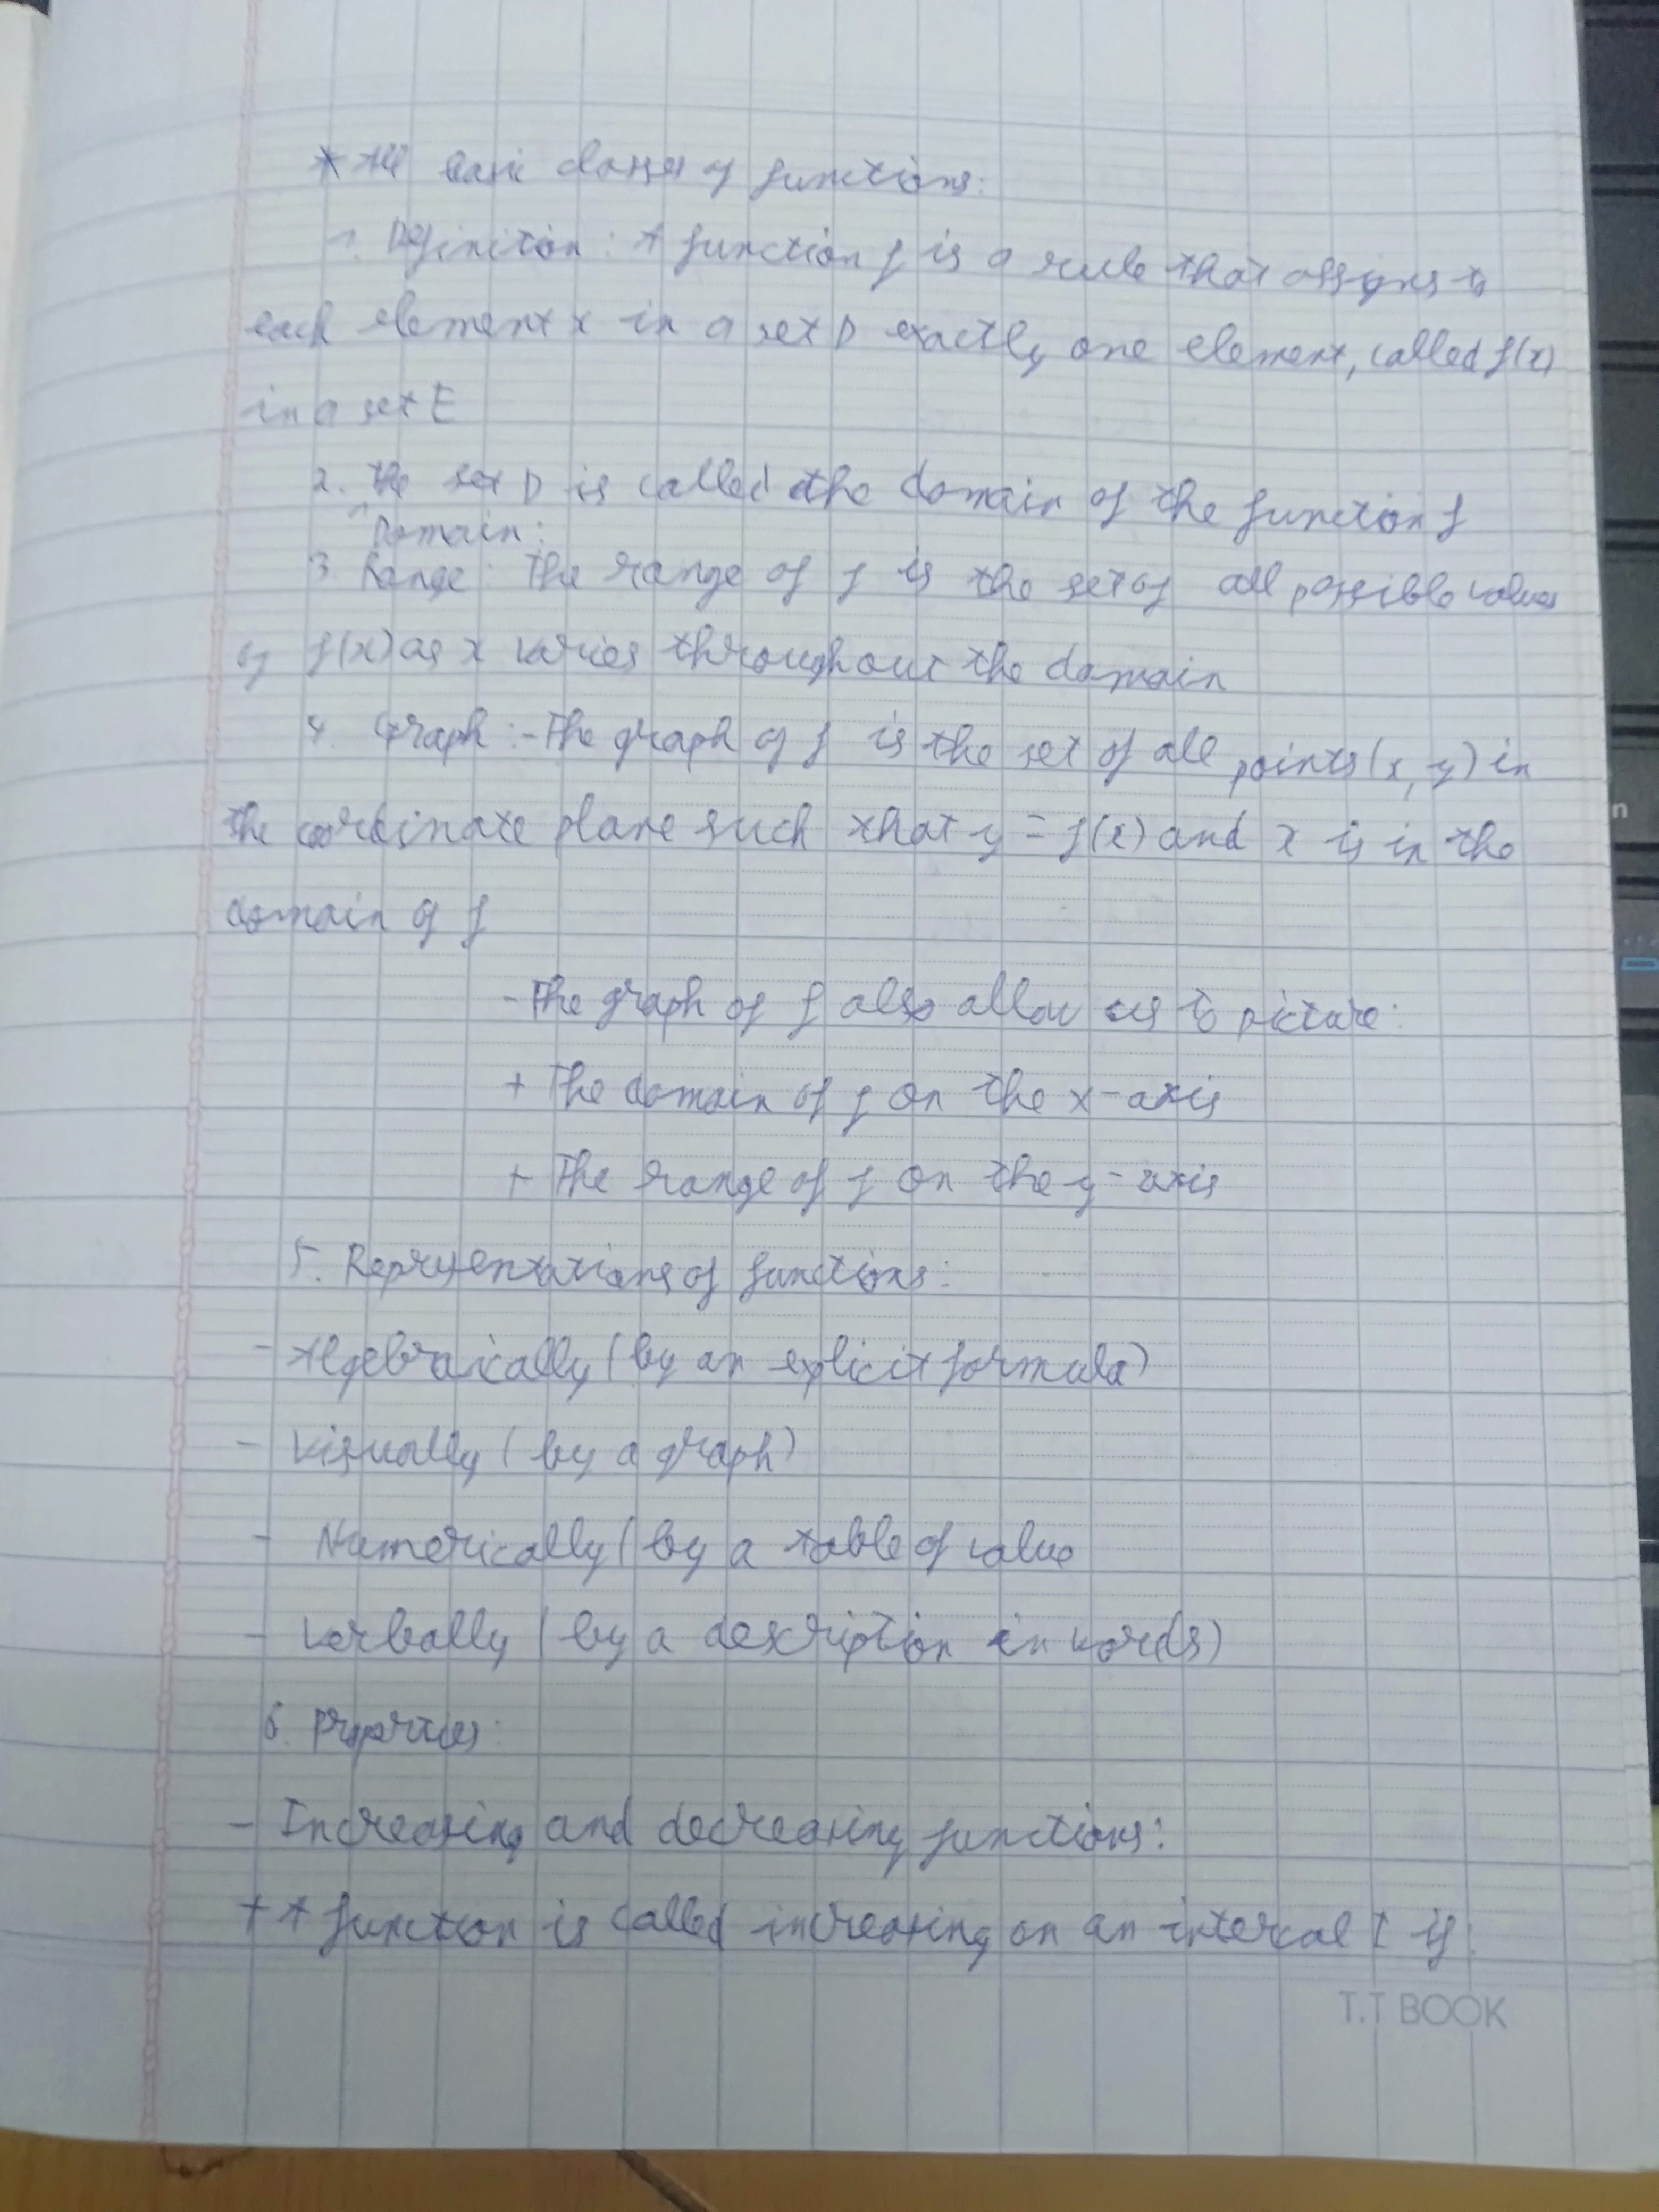 * The basic classes of functions:
1. Definition: A function f is a rule that assigns to
each element x in a set D exactly one element, called f(x)
in a set E
2. The set D is called the domain of the function f
^ Domain:
3 Range: The range of f is the set of all possible values
of f(x) as x varies throughout the domain
4. Graph: - The graph of f is the set of all points (x, y) in
the coordinate plane such that y = f(x) and x is in the
domain of f
- The graph of f also allow us to picture:
+ The domain of f on the x-axis
+ The range of f on the y-axis
5. Representations of functions:
- Algebraically (by an explicit formula)
- Visually (by a graph)
- Numerically (by a table of value
- Verbally (by a description in words)
6. Properties:
- Increasing and decreasing functions:
+ A function is called increasing on an interval I if:
T.T BOOK